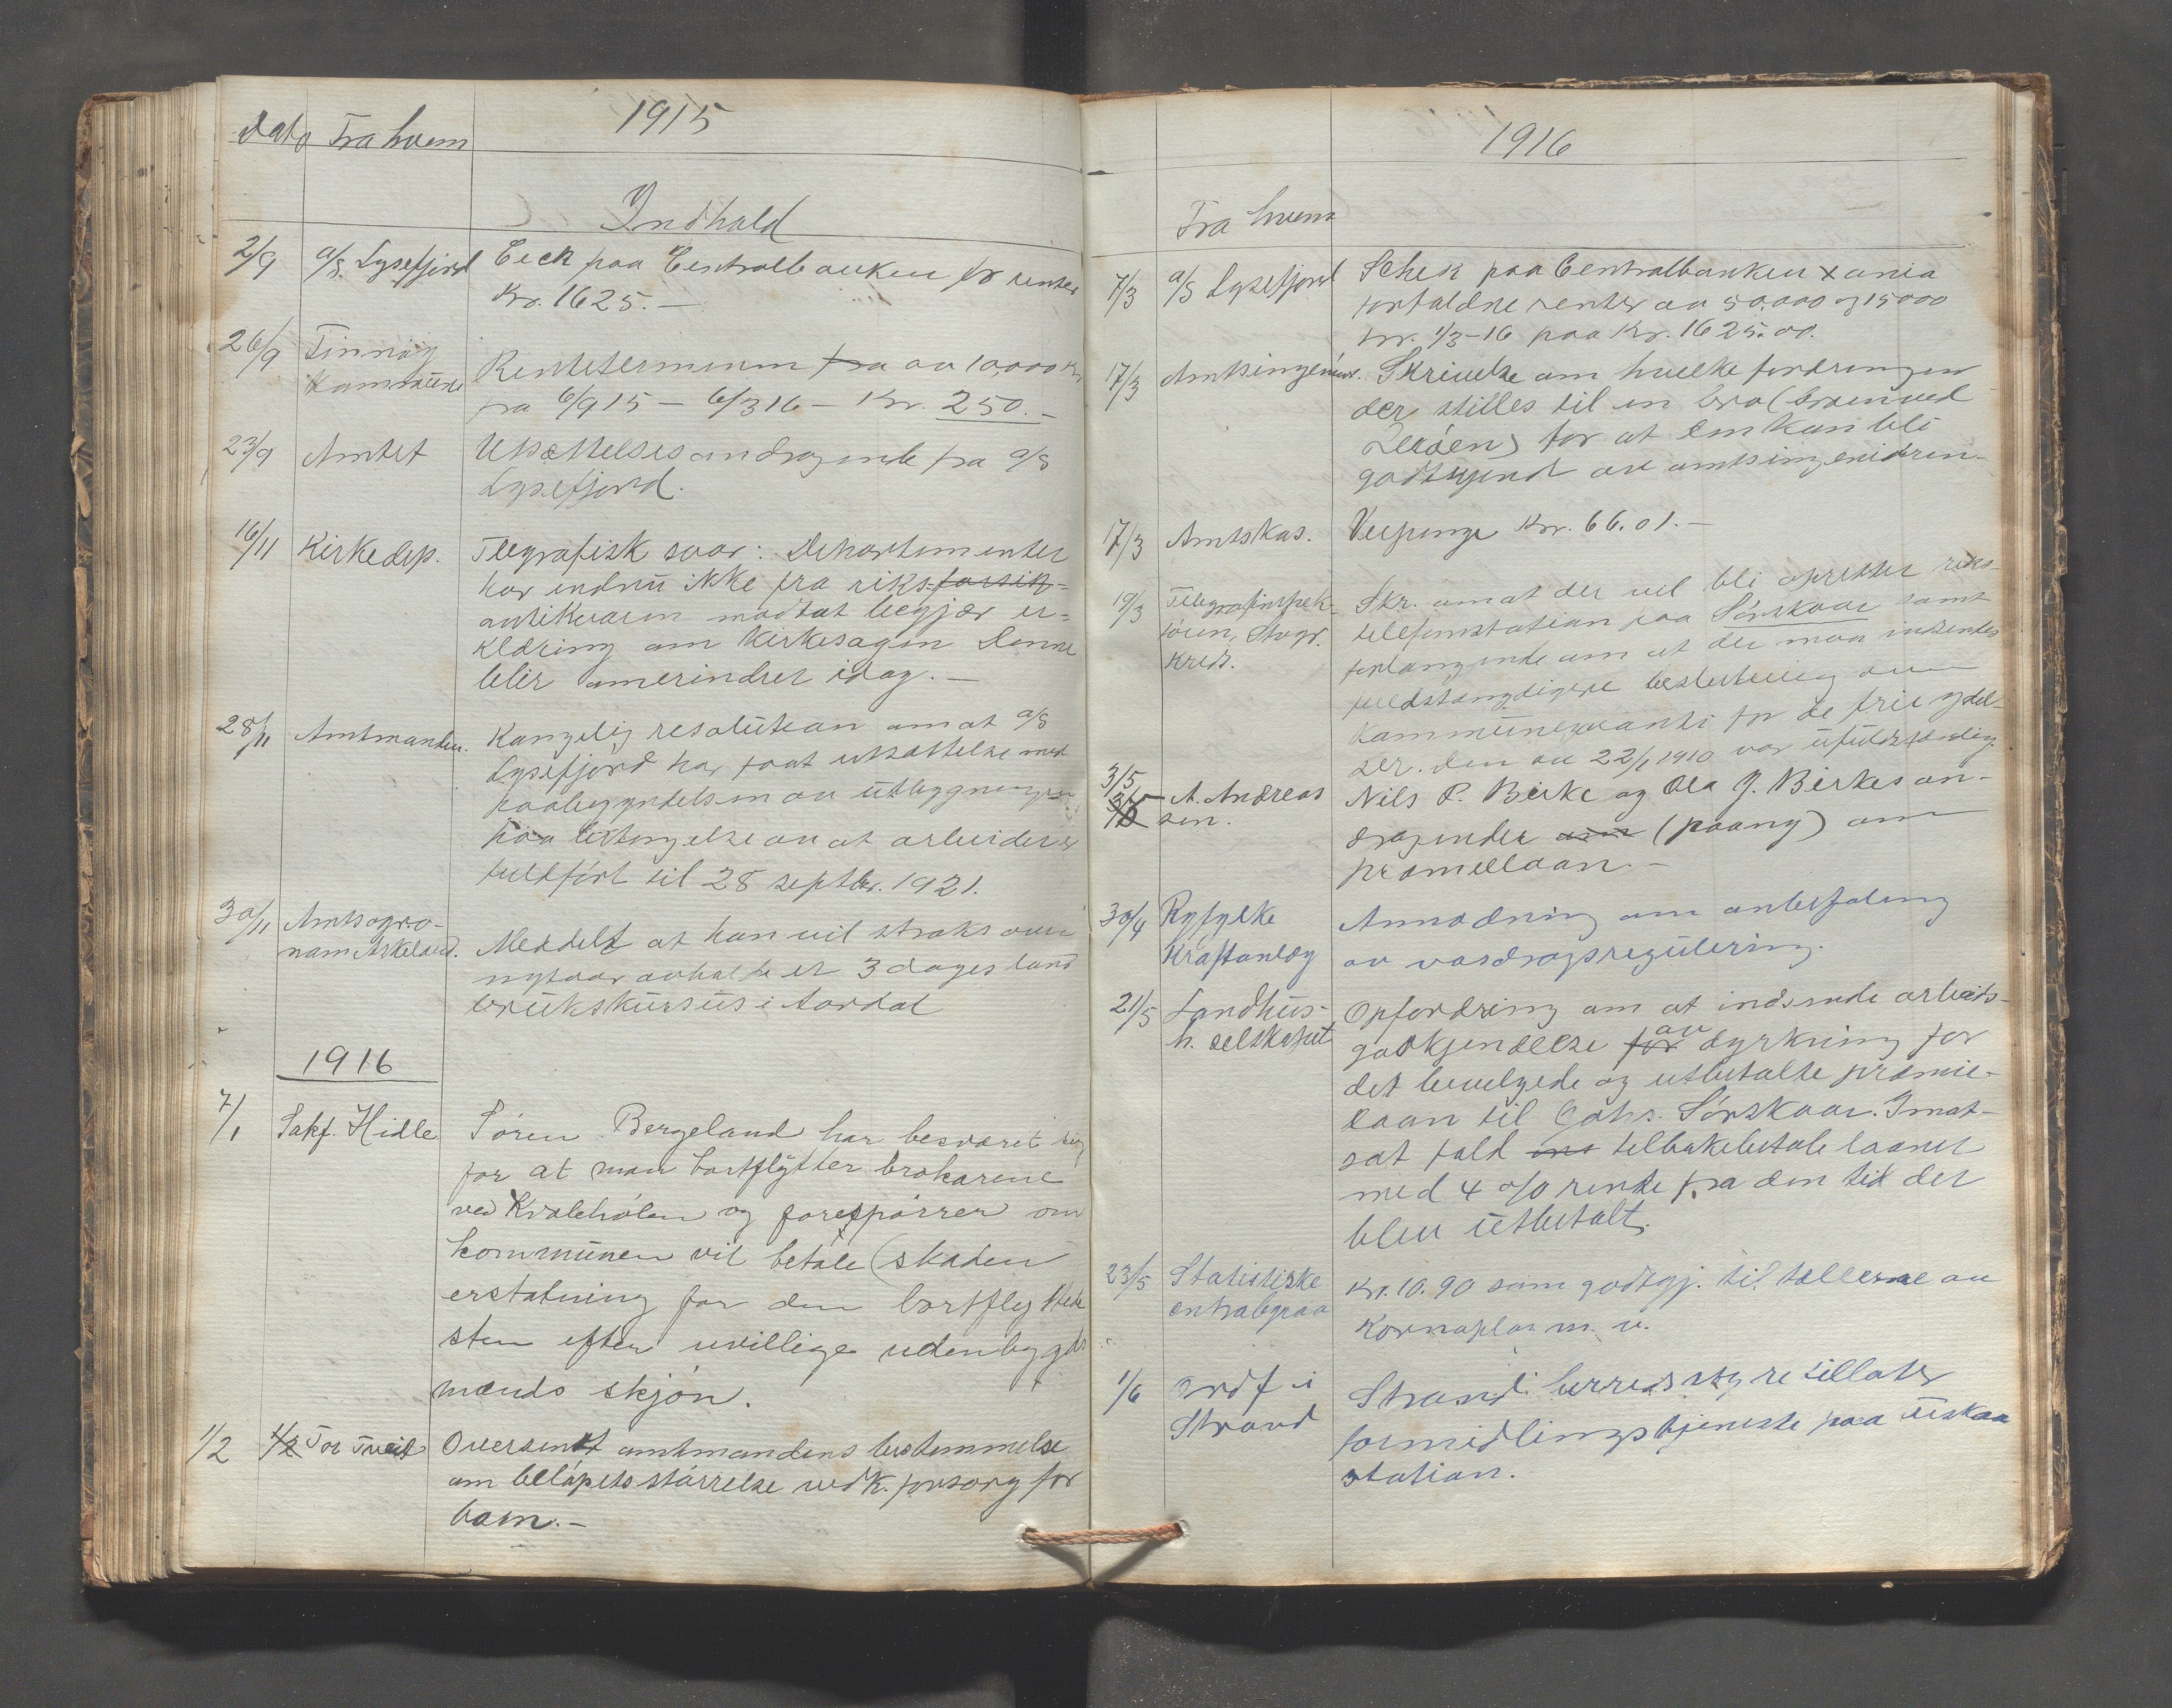 1915
Dato Fra hvem
Indhold
2/9 a/s. Lysefjord Ceck paa Centralbanken for renter
Kr. 1625.—
26/9 Finnøy Kommune Rentetermin fra av 10,000 kr
fra 6/9 15 – 6/3 16 – Kr. 250.–
23/9 Amtet Utsættelsesandragende fra a/s
Lysefjord.
16/11 Kirkedep. Telegrafisk svar: Departementet
har endnu ikke fra riks-forsik-
antikvaren modtat begjær er-
klæring om Kirkesagen Denne
blir omerindret idag.—
28/11 Amtmanden. Kongelig resolution om at a/s
Lysefjord har faat utsættelse med
paabegyndelsen av utbygningen
paa betingelse av at arbeidet er
fuldført til 28 septbr. 1921.
30/11 Amtsagro-
nom Askeland. Meddelt at han vil straks over
nytaar avholde et 3 dages land
brukskursus i Aardal
1916
7/1 Sakf. Hidle. Søren Bergeland har besværet sig
for at man bortflytter brokarene
ved Kvalehølen og forespørrer om
kommunen vil betale (skaden
erstatning for den bortflyttede
sten efter uvillige udenbygds
mænds skjøn.
1/2 1/2 Tor Tveit Oversendt amtmandens bestemmelse
om beløpets størrelse vedk. forsorg for
barn.–
1916
Fra hvem
7/3 a/s Lysefjord Schek paa Centralbanken xania
forfaldne renter av 50,000 og 15000
kr. 1/3–16 paa Kr. 1625.00.
17/3 Amtsingeniør. Skrivelse om hvilke fordringer
der stilles til en bro (broen ved
for at den kan bli
godkjend av amtsingeniøren.
17/3 Amtskas. Veipenge Kr. 66.01.–
19/3 Telegrafinspek-
tøren, Stvgr.
Kreds. Skr. om at der vil bli oprettet riks-
telefonstation paa Sørskaar samt
forlangende om at der maa indsendes
fuldstændigere beslutning om
kommunegaranti for de frie ydel-
ser. den av 22/1 1910 var ufuldstændig.
3/5
3/5 A. Andreas
sen. Nils P. Birke og Ola J. Birkes an-
dragender om (paang) om
præmielaan.–
30/4 Ryfylke
Kraftanlæg Anmodning om anbefaling
av vasdragsregulering.
21/5 Landhus-
h. selskapet Opfordring om at indsende arbeids-
godkjendelse for av dyrkning for
det bevilgede og utbetalte præmie-
laan til Johs. Sørskaar. I mot-
sat fald ins tilbakebetale laanet
med 4 o/o rente fra den tid det
blev utbetalt.
23/5 Statistiske
entralbyraa Kr. 10.90 som godtgj. til tællerne av
Kornoplag m. v.
1/6 Ordf i
Strand Strand herredsstyre tillater
formidlingstjeneste paa Tuskaa
station.